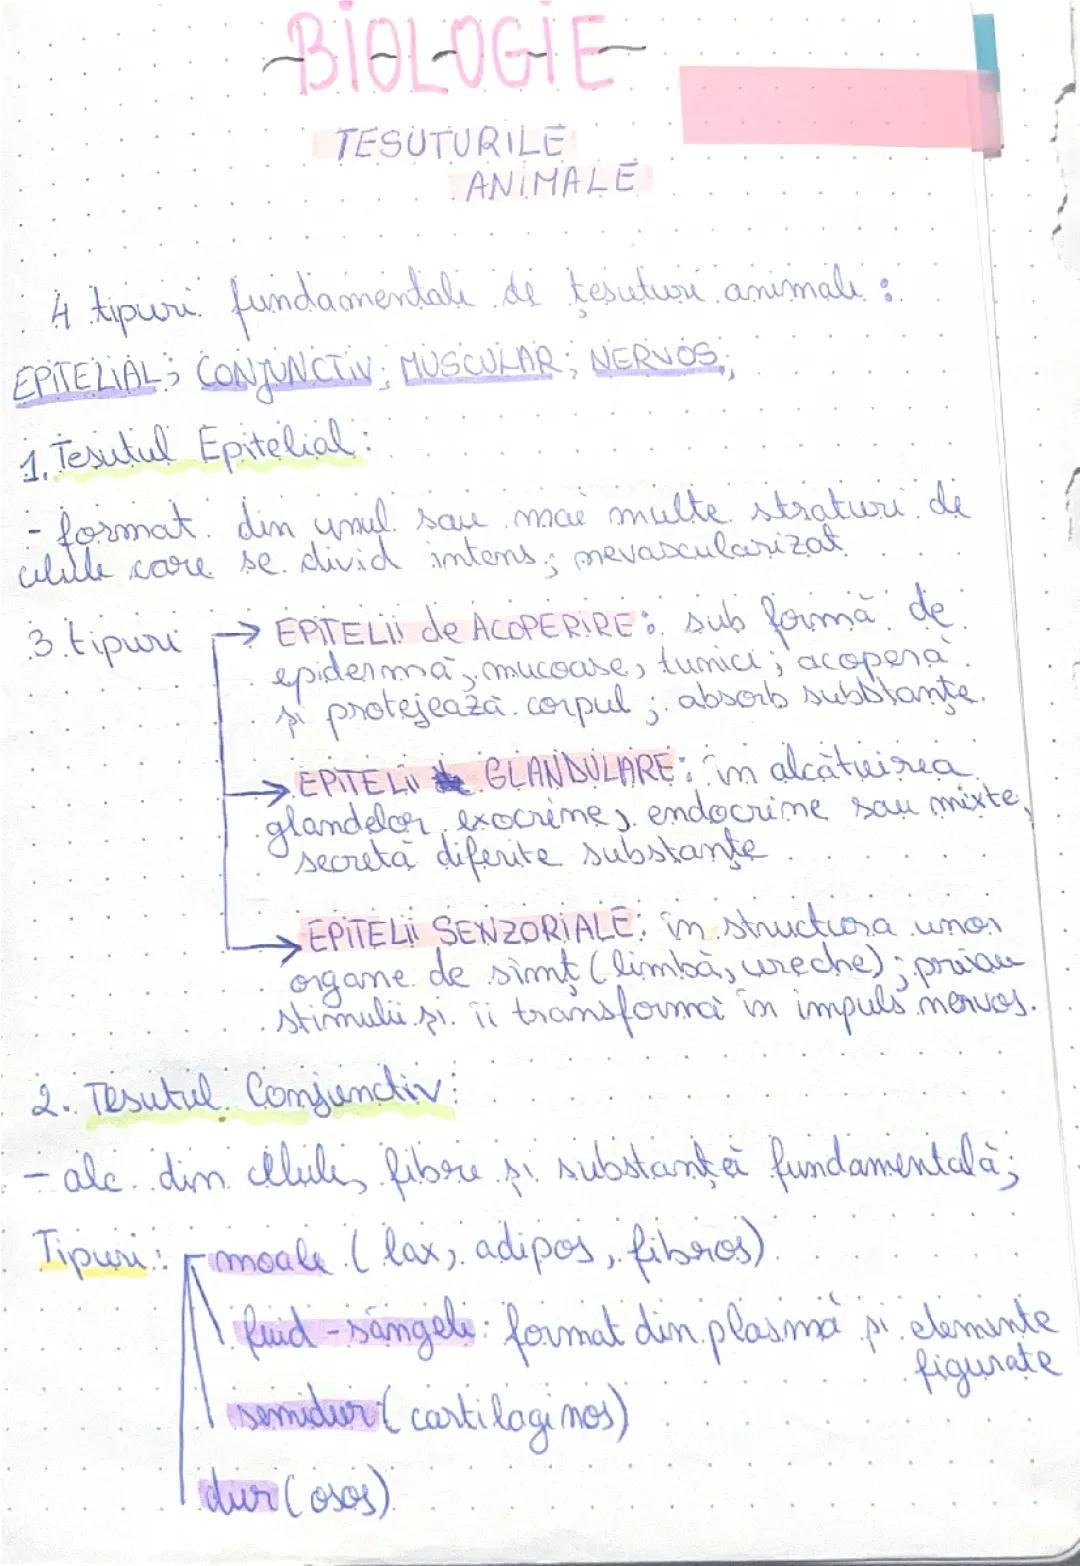 BIOLOGIE
TESUTURILE
ANIMALE
4 tipuri fundamentale de țesuturi animale:
EPITELIAL; CONJUNCTIV; MUSCULAR; NERVOS;
1. Tesutul Epitelial:
- format din unul sau mai multe straturi de
celule care se divid intens; nevascularizat
3 tipuri → EPITELII de ACOPERIRE: sub formă de
epidermă, mucoase, tunici; acoperă
și protejează corpul; absorb substanțe.
→ EPITELII GLANDULARE: în alcătuirea
glandelor exocrine, endocrine sau mixte,
secretă diferite substanțe
→ EPITELII SENZORIALE: în structura unor
organe de simț (limbă, ureche); preiau
stimulii și îi transformă în impuls nervos.
2. Tesutul Conjunctiv:
- alc. din celule, fibre și substanță fundamentală;
Tipuri: moale (lax, adipos, fibros)
fluid - sângele: format din plasmă și elemente
figurate
semidur (cartilaginos)
dur (osos)